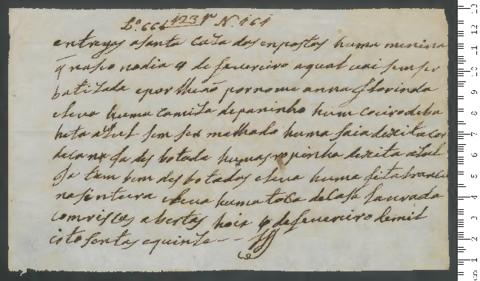 Lo 66f 123 N. 161
entregas a Santa Caza dos enpostos huma menina
q nasio nodia 9 de fevereiro aqual vai sem ser
batizada eporlhão por nome anna Florinda
eleva huma camiza depaninho hum coeiro deba
heta azul sem ser malhado huma saia dexita cor
de desbotada huma dexita azul
ja tam bem desbotados eleva huma fita branca
nasentura eleva huma toca de Casa lavrada
com riscas abertas hoie 9 de fevereiro demil
oito sentos equinta